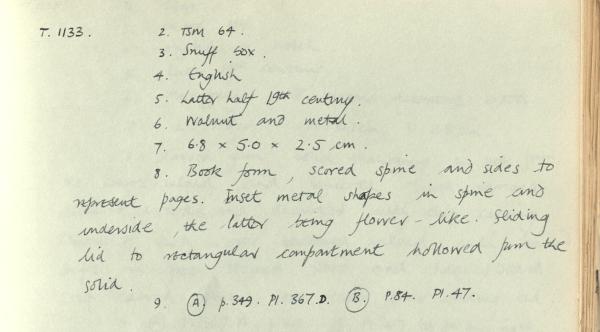 T. 1133. 2. TSM 64.
3. Snuff box.
4. English
5. Latter half 19th century.
6. Walnut and metal.
7. 6.8 x 5.0 x 2.5 cm.
8. Book form, scored spine and sides to
represent pages. Inset metal shapes in spine and
underside, the latter being flower-like. Sliding
lid to rectangular compartment hollowed from the
solid.
9. (A.) p.349. Pl. 367.D. (B.) P.84. Pl.47.